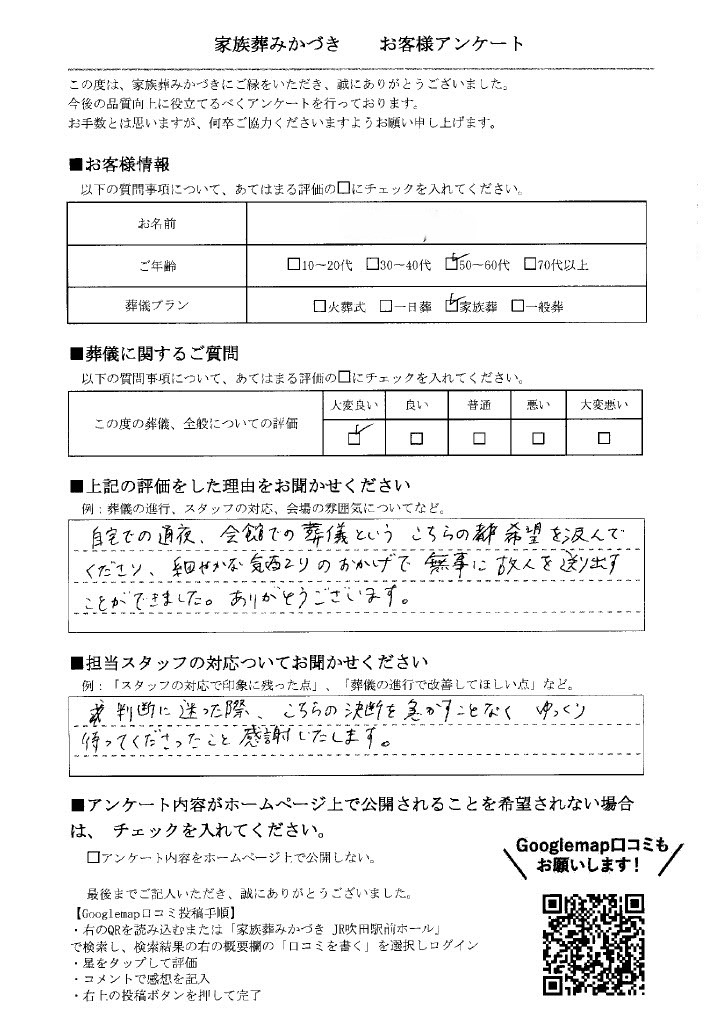 家族葬みかづき　　お客様アンケート
この度は、家族葬みかづきにご縁をいただき、誠にありがとうございました。
今後の品質向上に役立てるべくアンケートを行っております。
お手数とは思いますが、何卒ご協力くださいますようお願い申し上げます。
■お客様情報
以下の質問事項について、あてはまる評価の□にチェックを入れてください。
お名前
ご年齢　□10～20代　□30～40代　☑50～60代　□70代以上
葬儀プラン　□火葬式　□一日葬　☑家族葬　□一般葬
■葬儀に関するご質問
以下の質問事項について、あてはまる評価の□にチェックを入れてください。
大変良い　良い　普通　悪い　大変悪い
この度の葬儀、全般についての評価　☑　□　□　□　□
■上記の評価をした理由をお聞かせください
例：葬儀の進行、スタッフの対応、会場の雰囲気についてなど。
自宅での通夜、会館での葬儀という こちらの希望を汲んで
くださり、細やかな気配りのおかげで 無事に故人を送り出す
ことができました。ありがとうございます。
■担当スタッフの対応ついてお聞かせください
例：「スタッフの対応で印象に残った点」、「葬儀の進行で改善してほしい点」など。
判断に迷った際、こちらの決断を急かすことなく ゆっくり
待ってくださったこと感謝いたします。
■アンケート内容がホームページ上で公開されることを希望されない場合
は、 チェックを入れてください。
□アンケート内容をホームページ上で公開しない。
Googlemap口コミも
お願いします！
最後までご記入いただき、誠にありがとうございました。
【Googlemap口コミ投稿手順】
・右のQRを読み込むまたは「家族葬みかづき JR吹田駅前ホール」
で検索し、検索結果の右の概要欄の「口コミを書く」を選択しログイン
・星をタップして評価
・コメントで感想を記入
・右上の投稿ボタンを押して完了